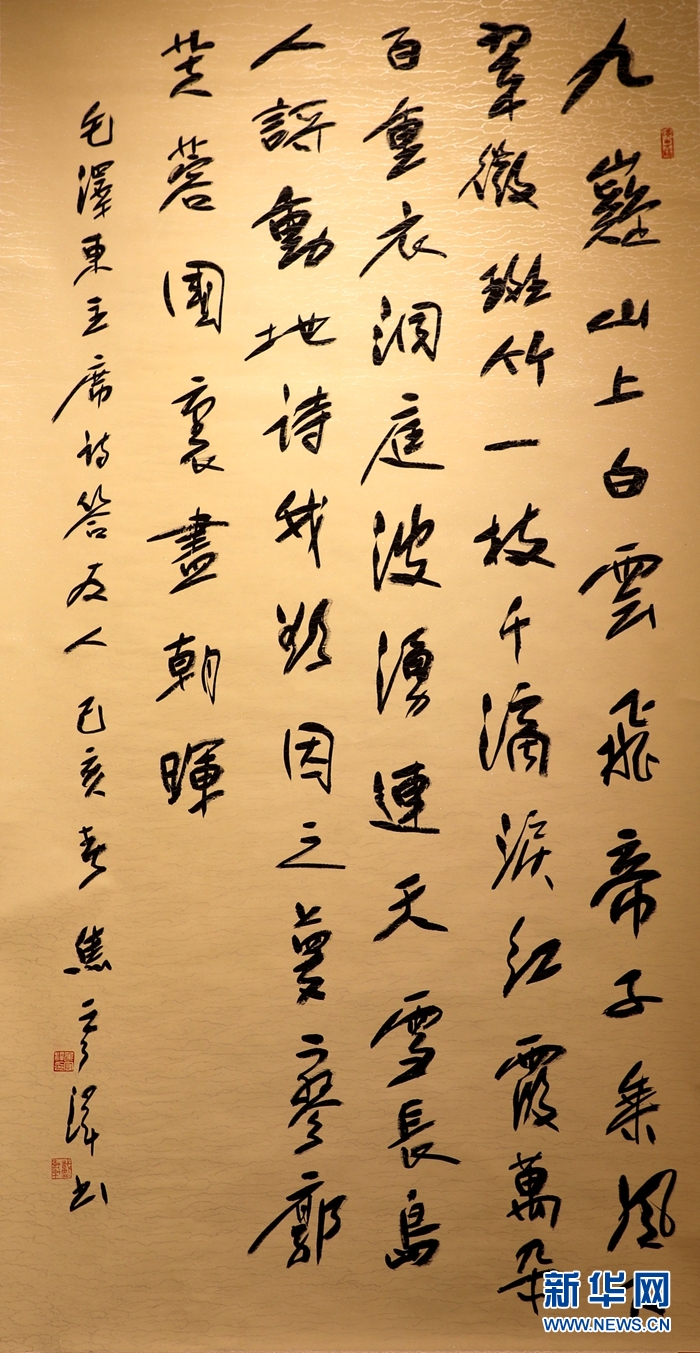 九嶷山上白雲飛帝子乘風下
翠微斑竹一枝千滴淚紅霞萬朵
百重衣洞庭波湧連天雪長島
人謌動地詩我欲因之夢寥廓
芙蓉國裏盡朝暉
毛澤東主席詩答友人己亥春焦书
新华网
WWW.NEWS.CN